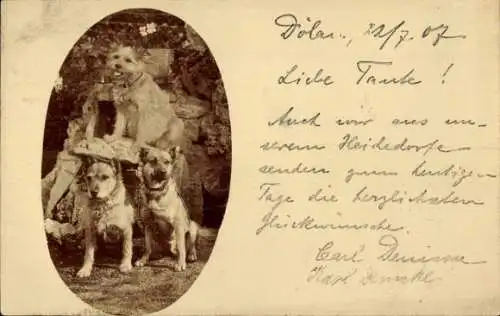 Dölau, 21/7.07
Liebe Tante!
Auch wir aus un-
serem Heidedorfe
senden zum heutigen
Tage die herzlichsten
Glückwünsche.
Carl
Karl